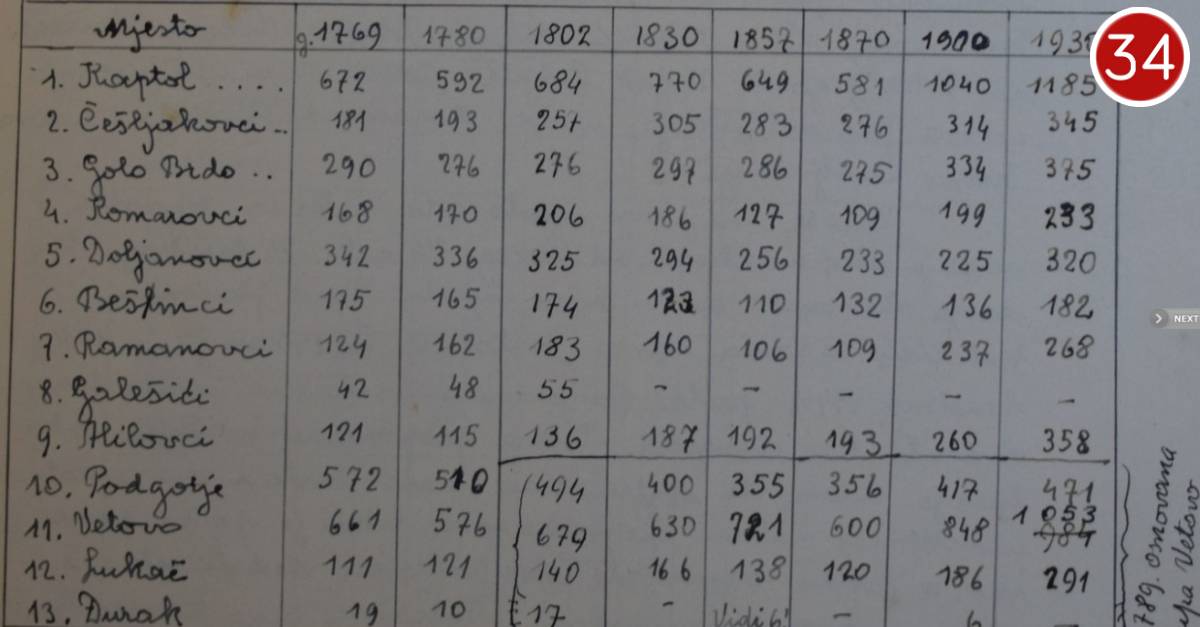 Mjesto g. 1769 1780 1802 1830 1857 1870 1900 193
34
1. Kaptol .... 672 592 684 770 649 581 1040 1185
2. Češljakovci .. 181 193 257 305 283 276 314 345
3. Golo Brdo .. 290 276 276 297 286 275 334 375
4. Komarovci 168 170 206 186 127 109 199 233
5. Doljanovci 342 336 325 294 256 233 225 320
6. Bešlinci 175 165 174 123 110 132 136 182
7. Ramanovci 124 162 183 160 106 109 237 268
8. Golešići 42 48 55 - - - - -
9. Alilovci 121 115 136 187 192 193 260 358
10. Podgorje 572 510 494 400 355 356 417 471
11. Vetovo 661 576 679 630 721 600 848 1053 984
12. Lukač 111 121 140 166 138 120 186 291
13. Đurak 19 10 17 - Vidi 6! - 6 -
789. osnovana
upa Vetovo
NEXT